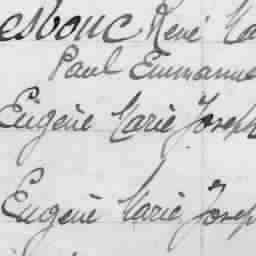 esbouc René Ma
Paul Emmanue
Eugène Marie Joseph
Eugène Marie Josep